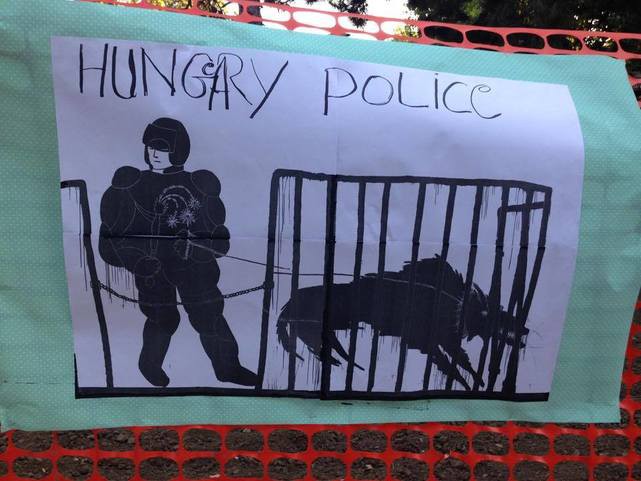 HUNGARY POLICE